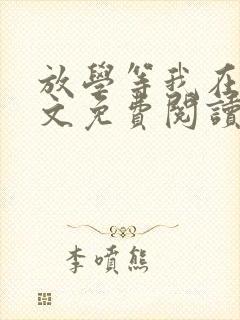 放學等我在
文免費閱讀
李噴熊